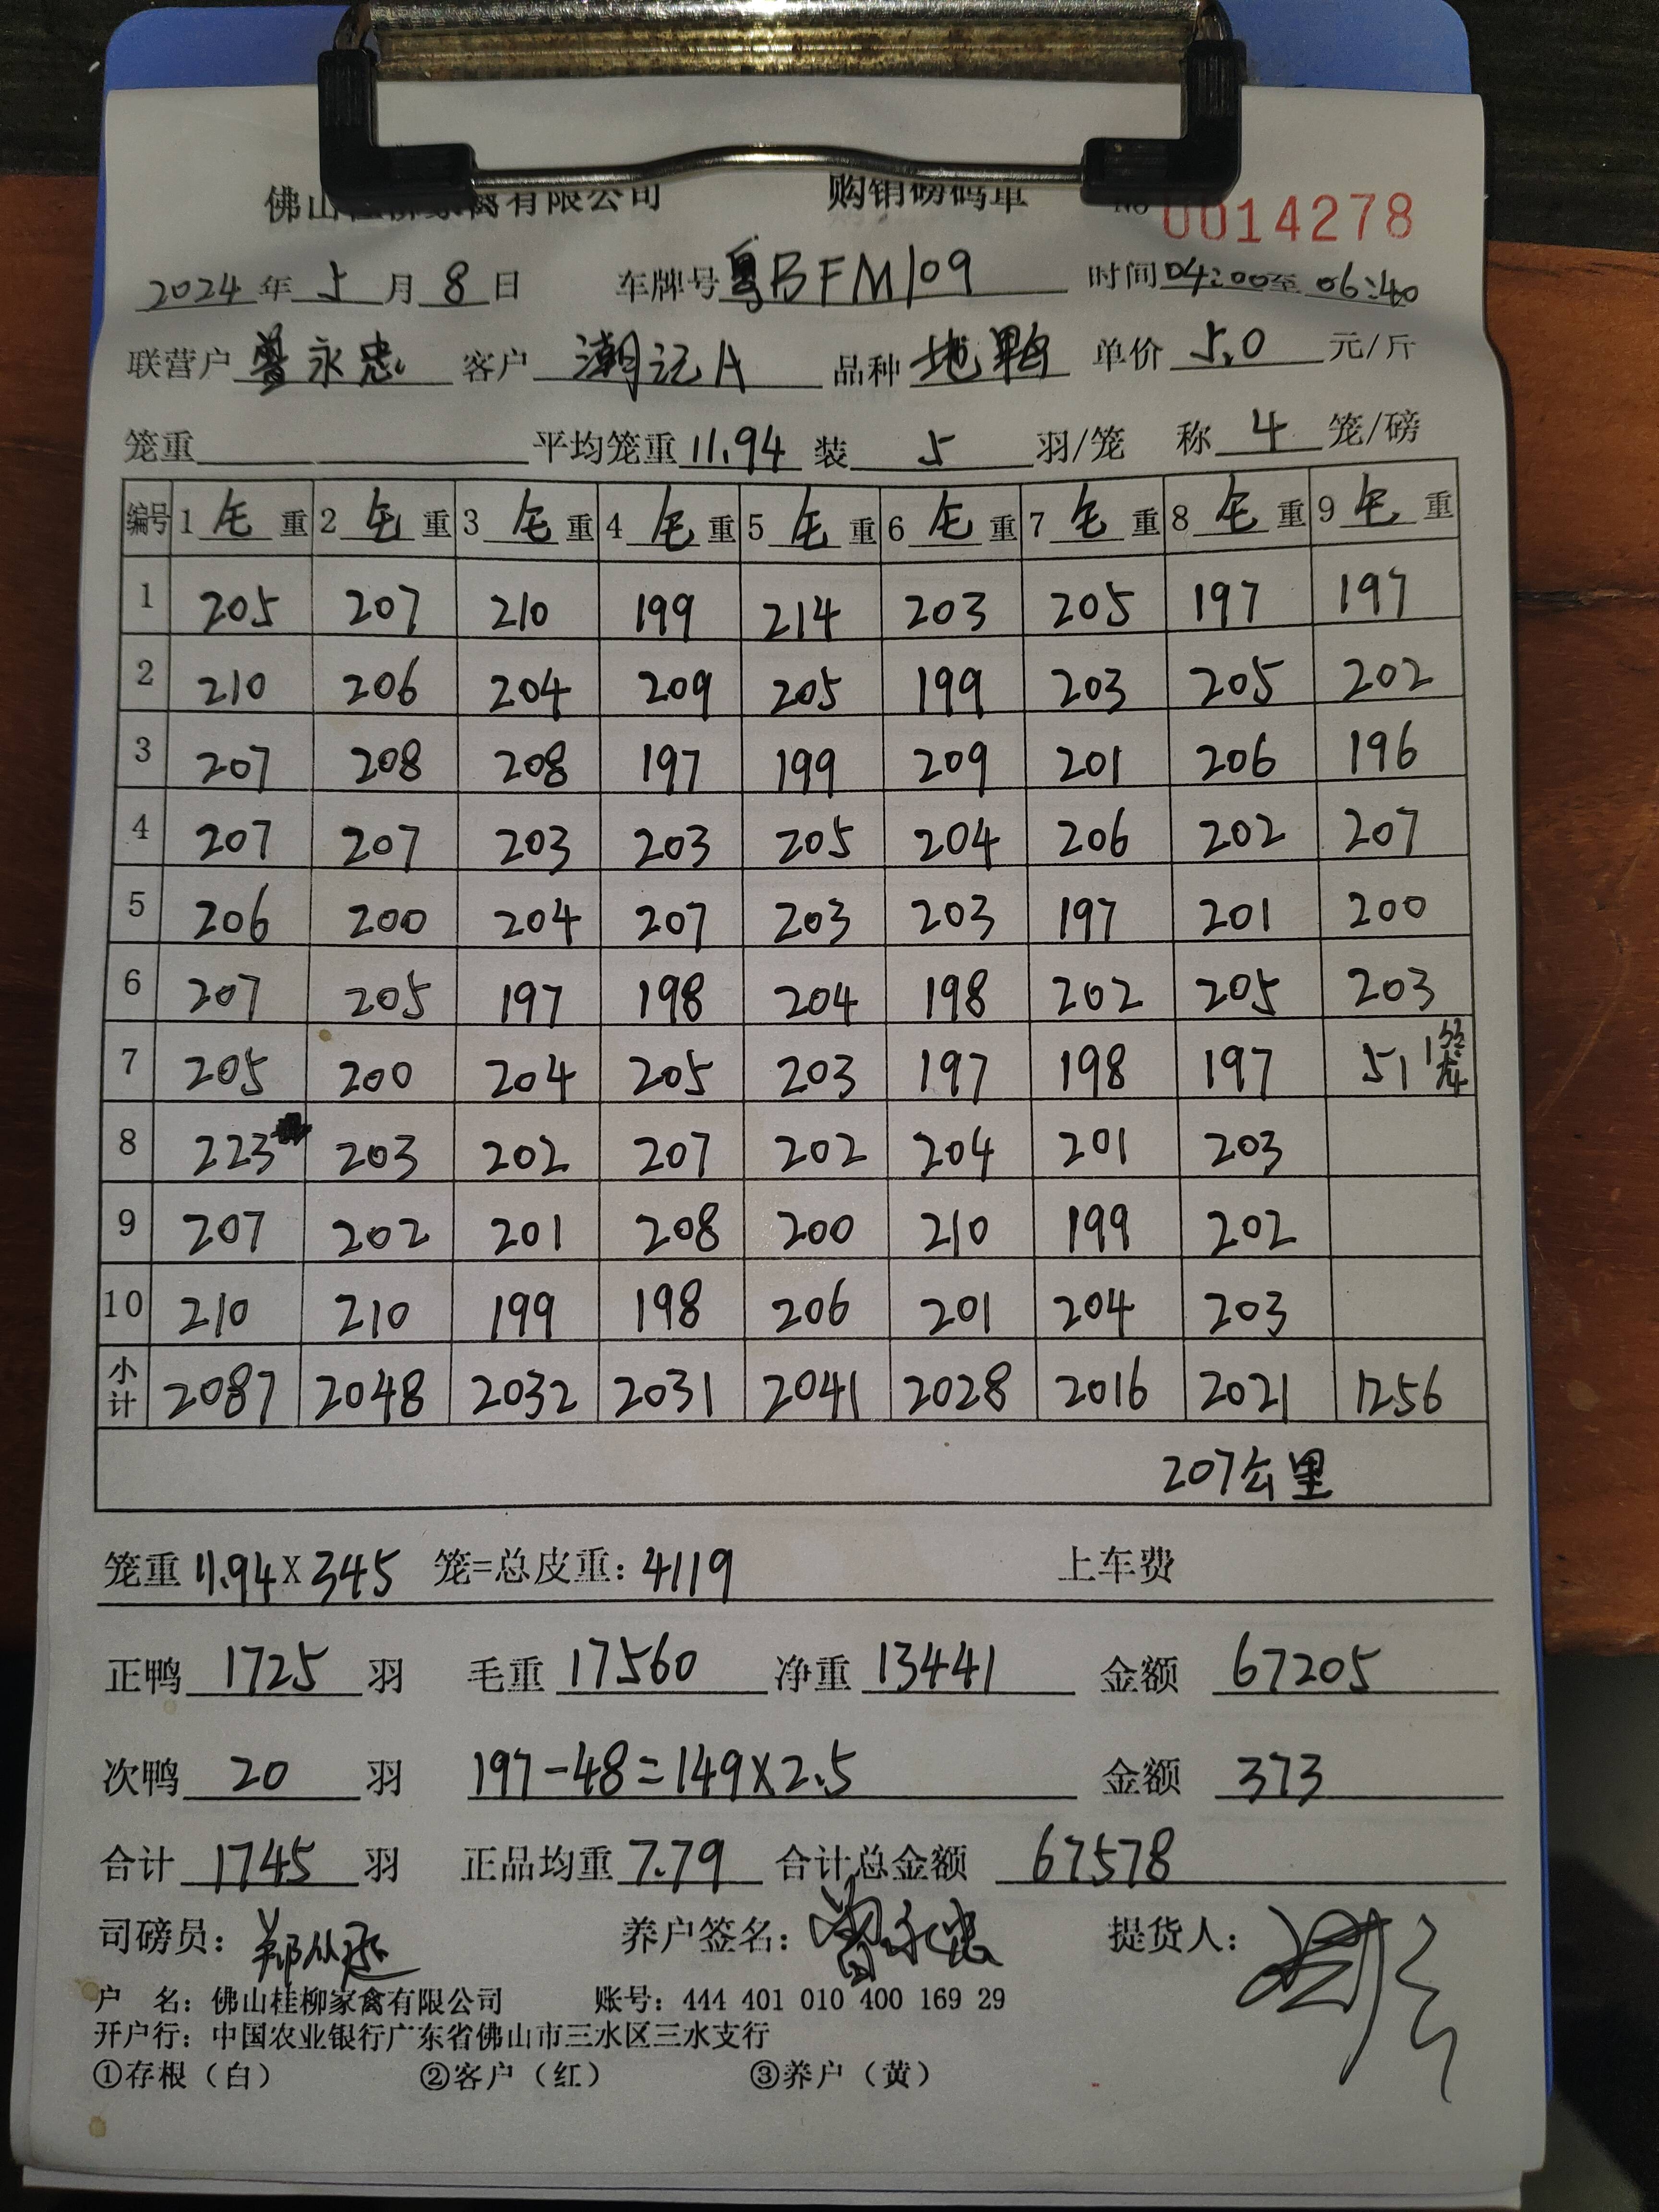 佛山桂柳家禽有限公司 购销磅码单 No 0014278
2024年5月8日 车牌号粤BFM109 时间04:00至06:40
联营户曾永忠 客户潮记A 品种地鸭 单价5.0元/斤
笼重 平均笼重11.94装5羽/笼 称4笼/磅
编号 1毛重 2毛重 3毛重 4毛重 5毛重 6毛重 7毛重 8毛重 9毛重
1 205 207 210 199 214 203 205 197 197
2 210 206 204 209 205 199 203 205 202
3 207 208 208 197 199 209 201 206 196
4 207 207 203 203 205 204 206 202 207
5 206 200 204 207 203 203 197 201 200
6 207 205 197 198 204 198 202 205 203
7 205 200 204 205 203 197 198 197 51 1笼
8 223 203 202 207 202 204 201 203
9 207 202 201 208 200 210 199 202
10 210 210 199 198 206 201 204 203
小计 2087 2048 2032 2031 2041 2028 2016 2021 1256
207公里
笼重11.94×345笼=总皮重:4119 上车费
正鸭1725羽 毛重17560 净重13441 金额67205
次鸭20羽 197-48=149×2.5 金额373
合计1745羽 正品均重7.79 合计总金额67578
司磅员: 郑从 养户签名:曾永忠 提货人:
户 名:佛山桂柳家禽有限公司 账号:444 401 010 400 169 29
开户行:中国农业银行广东省佛山市三水区三水支行
①存根(白) ②客户(红) ③养户(黄)